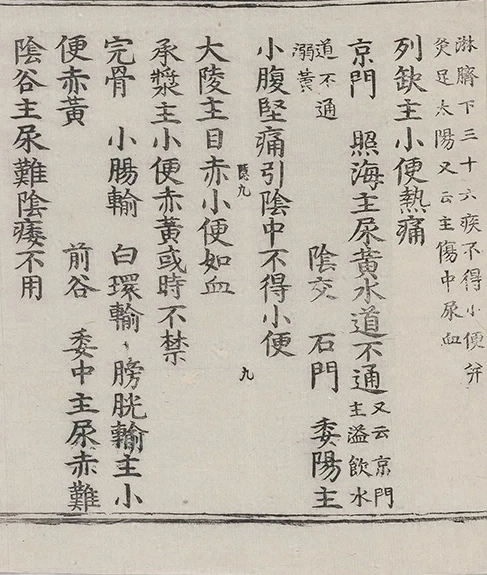 淋臍下三十六疾不得小便并
灸足太陽又云主傷中尿血
列缺主小便熱痛
京門　照海主尿黃水道不通又云京門
主溢飲水
道不通
溺黃　陰交　石門　委陽主
小腹堅痛引陰中不得小便
大陵主目赤小便如血
承漿主小便赤黃或時不禁
完骨　小腸輸　白環輸　膀胱輸主小
便赤黃　前谷　委中主尿赤難
陰谷主尿難陰痿不用